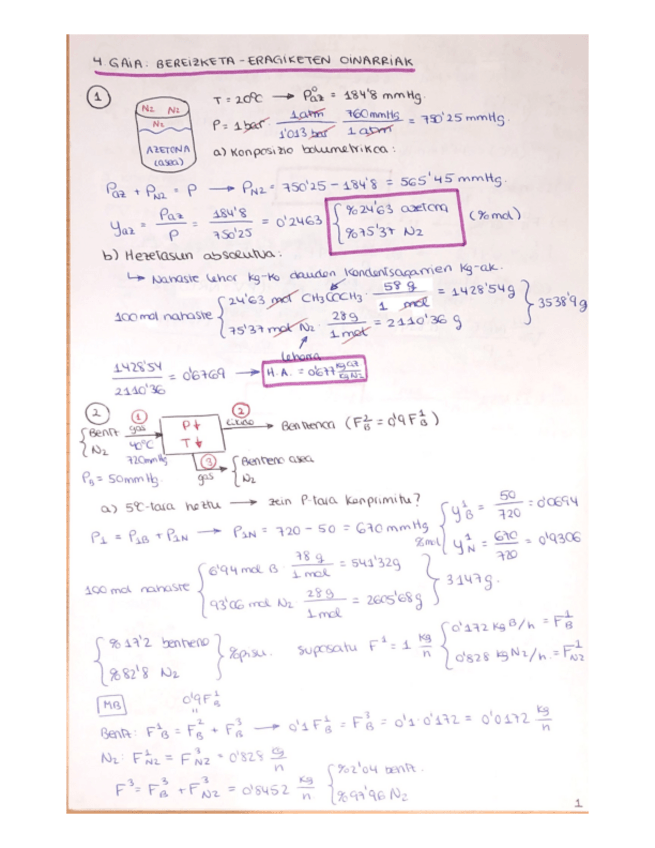 4. GAIA: BEREIZKETA-ERAGIKETEN OINARRIAK
①
N₂ N₂
N₂
AZETONA
(asea)
T = 20ºC → P°az = 184'8 mmHg.
P = 1 bar · 1 atm / 1'013 bar · 760 mmHg / 1 atm = 750'25 mmHg.
a) Konposizio bolumetrikoa:
Paz + PN2 = P → PN2 = 750'25 - 184'8 = 565'45 mmHg.
yaz = Paz / P = 184'8 / 750'25 = 0'2463 { %24'63 azetona
%75'37 N₂
(% mol)
b) Hezetasun absolutua:
↳ Nahaste lehor kg-ko dauden kondentsagarrien kg-ak.
100 mol nahaste { 24'63 mol CH₃COCH₃ · 58 g / 1 mol = 1428'54 g
75'37 mol N₂ · 28 g / 1 mol = 2110'36 g
} 3538'9 g
lehorra
1428'54 / 2110'36 = 0'6769 → H.A. = 0'677 kg az / kg N₂
②
{ Bentz
N₂
① gas
40ºC
720 mmHg
P↓
T↓
② likido → Bentzenoa (F²B = 0'9 F¹B)
③ gas { Bentzeno asea
N₂
PB = 50 mmHg.
a) 5ºC-tara hoztu → zein P-tara konprimitu?
P₁ = P1B + P1N → P1N = 720 - 50 = 670 mmHg
% mol { y¹B = 50 / 720 = 0'0694
y¹N = 670 / 720 = 0'9306
100 mol nahaste { 6'94 mol B · 78 g / 1 mol = 541'32 g
93'06 mol N₂ 28 g / 1 mol = 2605'68 g
} 3147 g.
{ %17'2 bentzeno
%82'8 N₂
} % pisu. suposatu F¹ = 1 kg / h { 0'172 kg B/h = F¹B
0'828 kg N₂/h. = F¹N2
MB
0'9F¹B
"
Bentz: F¹B = F²B + F³B → 0'1 F¹B = F³B = 0'1 · 0'172 = 0'0172 kg / h
N₂: F¹N2 = F³N2 = 0'828 kg / h
F³ = F³B + F³N2 = 0'8452 kg / h { %2'04 bentz.
%97'96 N₂
1